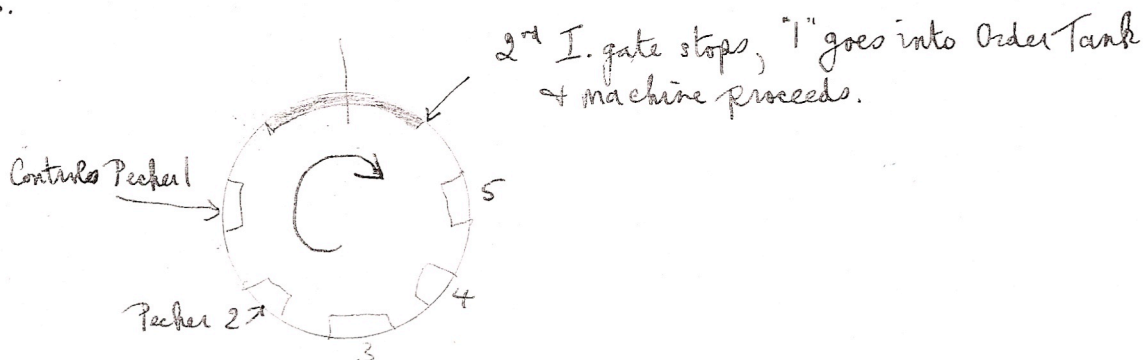 2nd I. gate stops, "1" goes into Order Tank
& machine proceeds.
Controls Pecker 1
5
4
Pecker 2
3